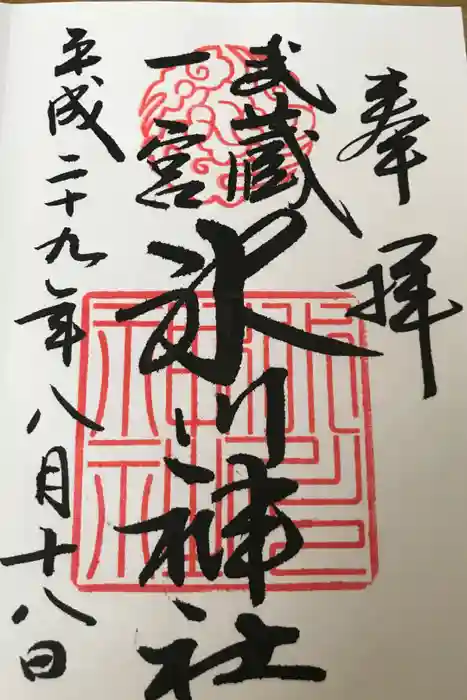 奉拝
武蔵
一宮
氷川神社
平成二十九年八月十八日
氷川神社